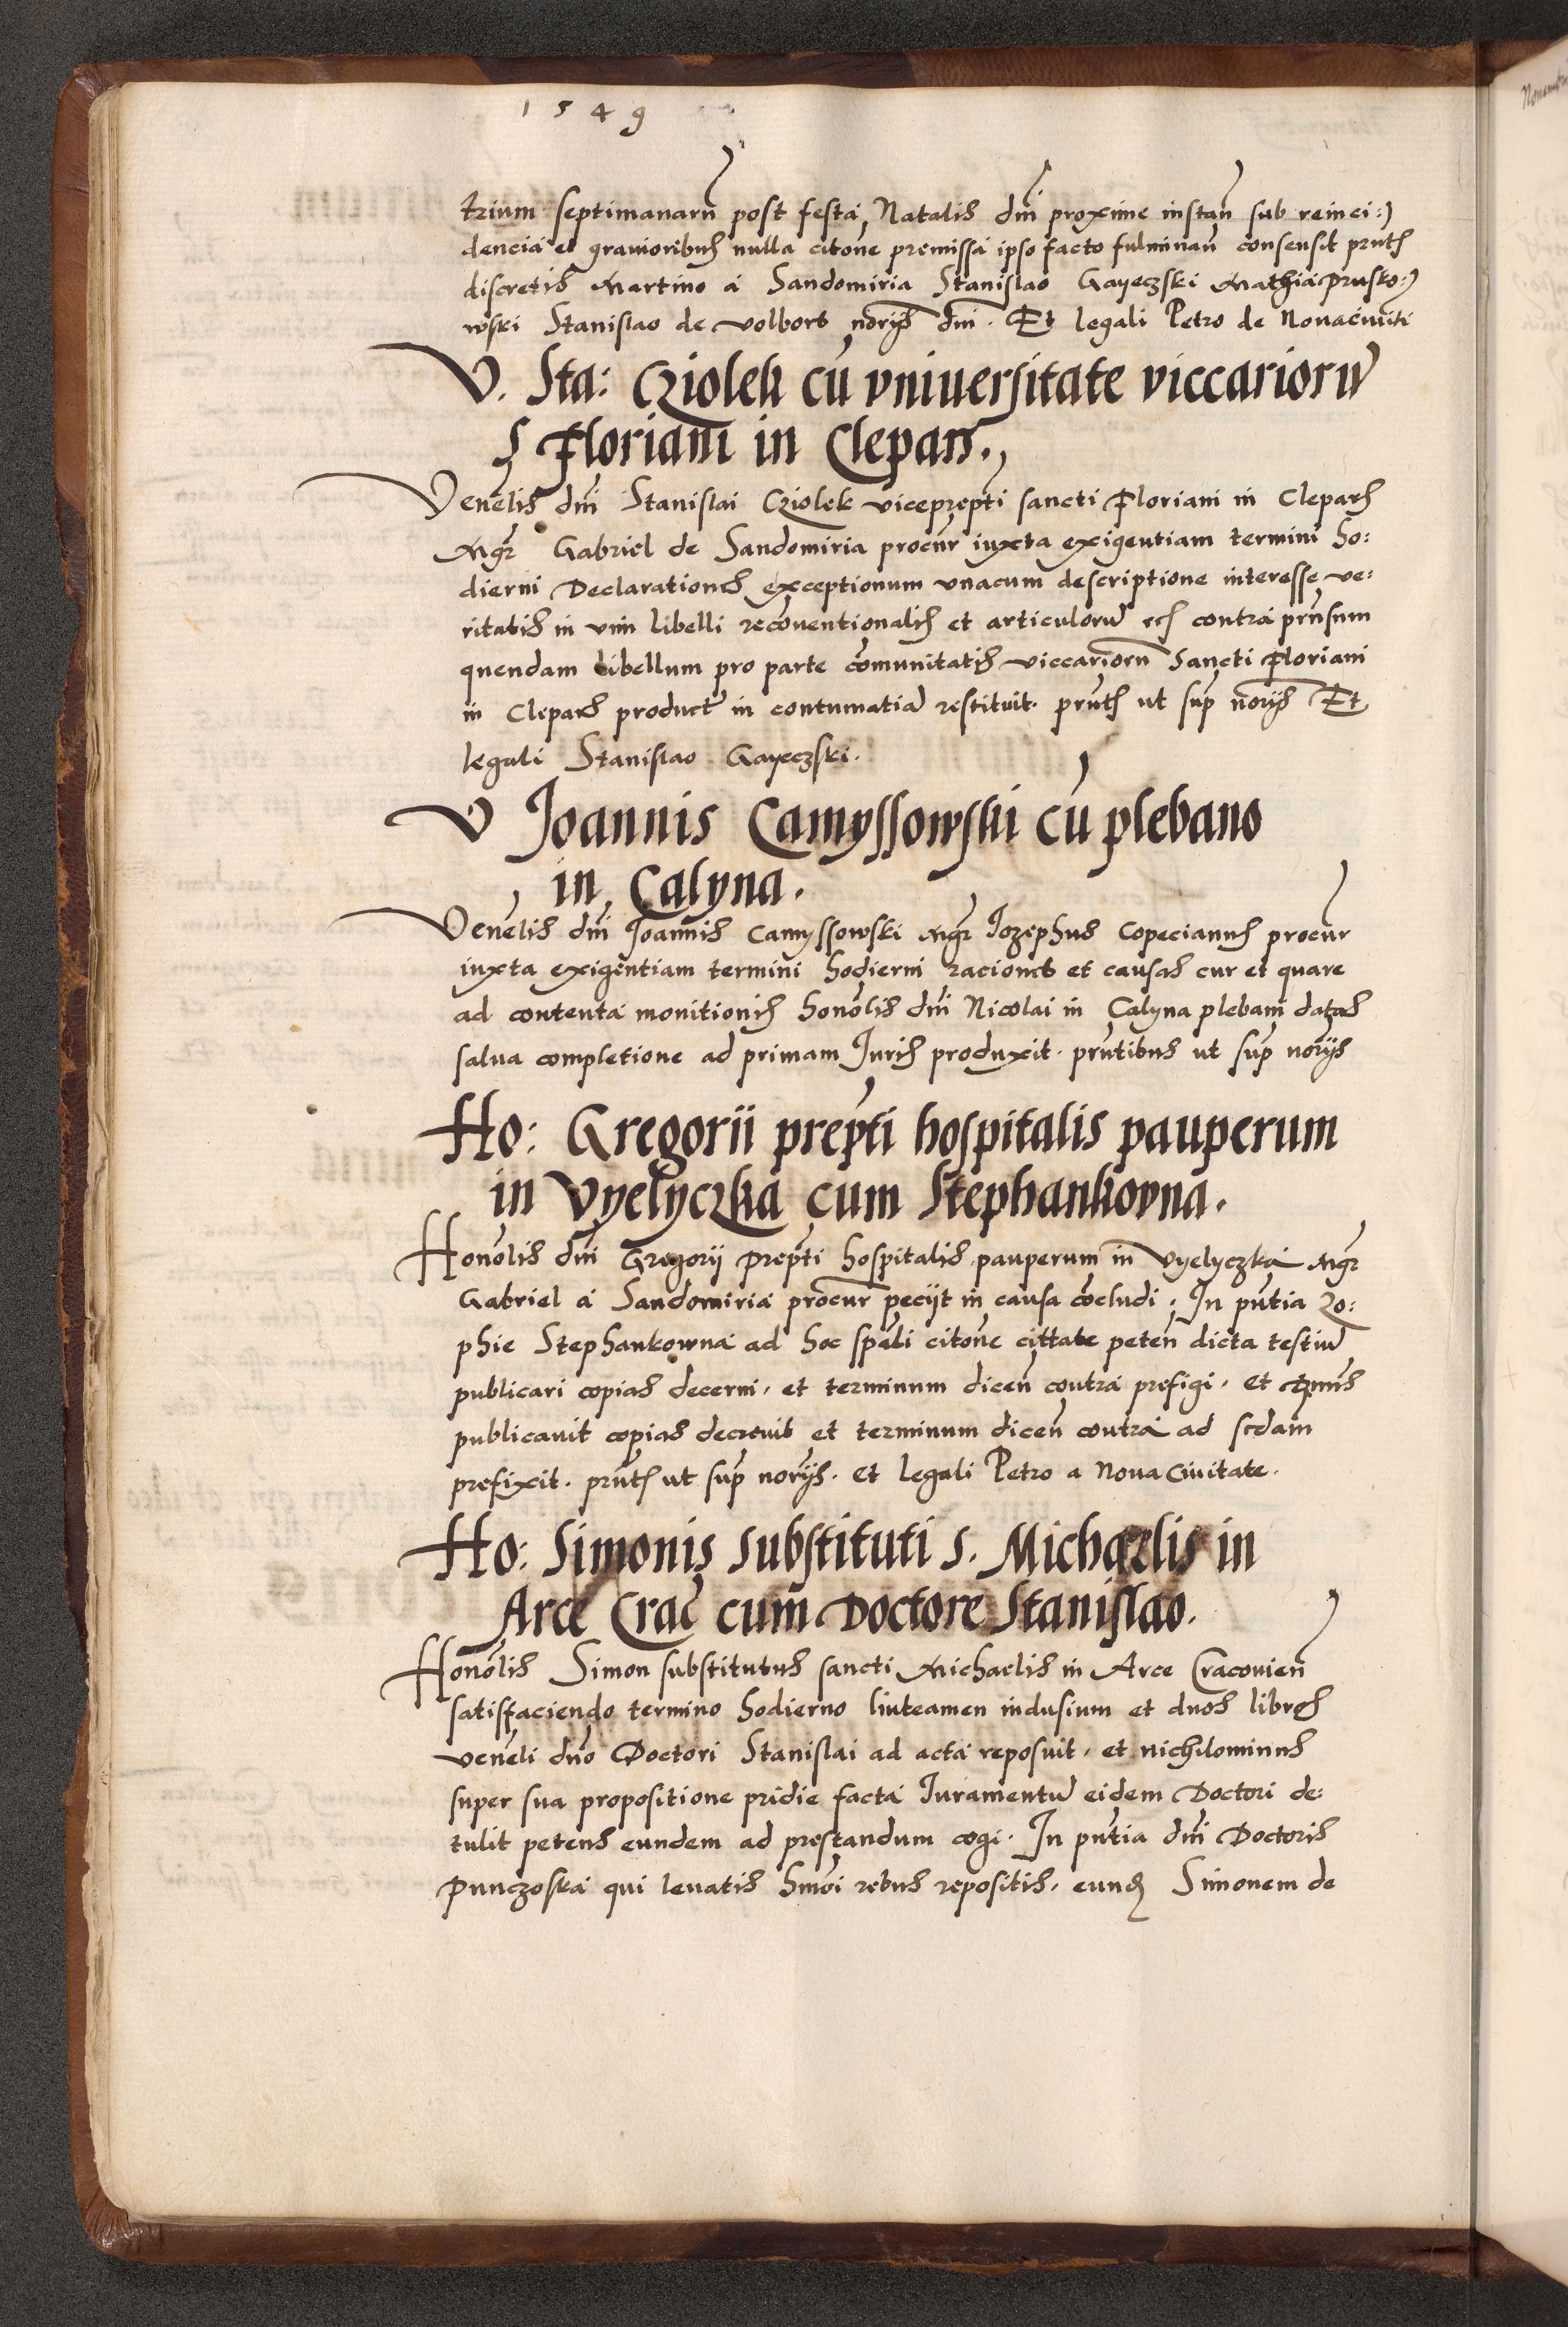 1549
trium septimanarũ post festa Natalis dñi proxime instañ sub reinci:
dencia et gravioribus nulla citoñe premissa ipso facto fulminañ consensit pñtħ
discretis Martino a Sandomiria Stanislao Gayeczski Mathia Prusko:
wski Stanislao de Volbors norijs dñi. Et legali Petro de Novacivita
V. Sta: Cziolek cũ universitate viccariorũ
S Floriani in Clepars.
Venelis dñi Stanislai Cziolek viceprepti sancti Floriani in Clepars
Mgr Gabriel de Sandomiria procur iuxta exigentiam termini ho:
dierni Declarationes exceptionum unacum descriptione interesse ve:
ritatis in vim libelli recoventionalis et articulorũ etc contra prñsum
quendam libellum pro parte comunitatis viccariorũ Sancti Floriani
in Clepars product in contumatia restituit. prñtħ ut sup norijs Et
legali Stanislao Gayeczski.
V Joannis Camyssowski cũ plebano
in Calyna.
Venelis dñi Joannis Camyssowski Mgr Jozephus Copecianus procur
iuxta exigentiam termini hodierni raciones et causas cur et quare
ad contenta monitionis honolis dñi Nicolai in Calyna plebani datas
salva completione ad primam Juris produxit. prñtibus ut sup norijs
Ho: Gregorii prepti hospitalis pauperum
in Vyelyczka cum Stephankovna.
Honolis dñi Gregorij prepti hospitalis pauperum in Vyelyczka Mgr
Gabriel a Sandomiria procur pecijt in causa cocludi. In pñtia Zo:
phie Stephankowna ad hoc spali citoñe cittate peteñ dicta testiũ
publicari copias decerni. et terminum diceñ contra prefigi. et dñus
publicavit copias decrevit et terminum diceñ contra ad scdam
prefixit. prñtħ ut sup norijs. et legali Petro a Nova Civitate.
Ho: Simonis substituti s. Michaelis in
Arce Crac cum Doctore Stanislao.
Honolis Simon substitutus sancti Michaelis in Arce Cracovieñ
satisfaciendo termino hodierno linteamen indusium et duos libros
veneli dño Doctori Stanislai ad acta reposuit. et nichilominus
super sua propositione pridie facta Juramentũ eidem Doctori de:
tulit petens eundem ad prestandum cogi. In pñtia dñi Doctoris
Punczoska qui levatis hmoi rebus repositis. eund Simonem de